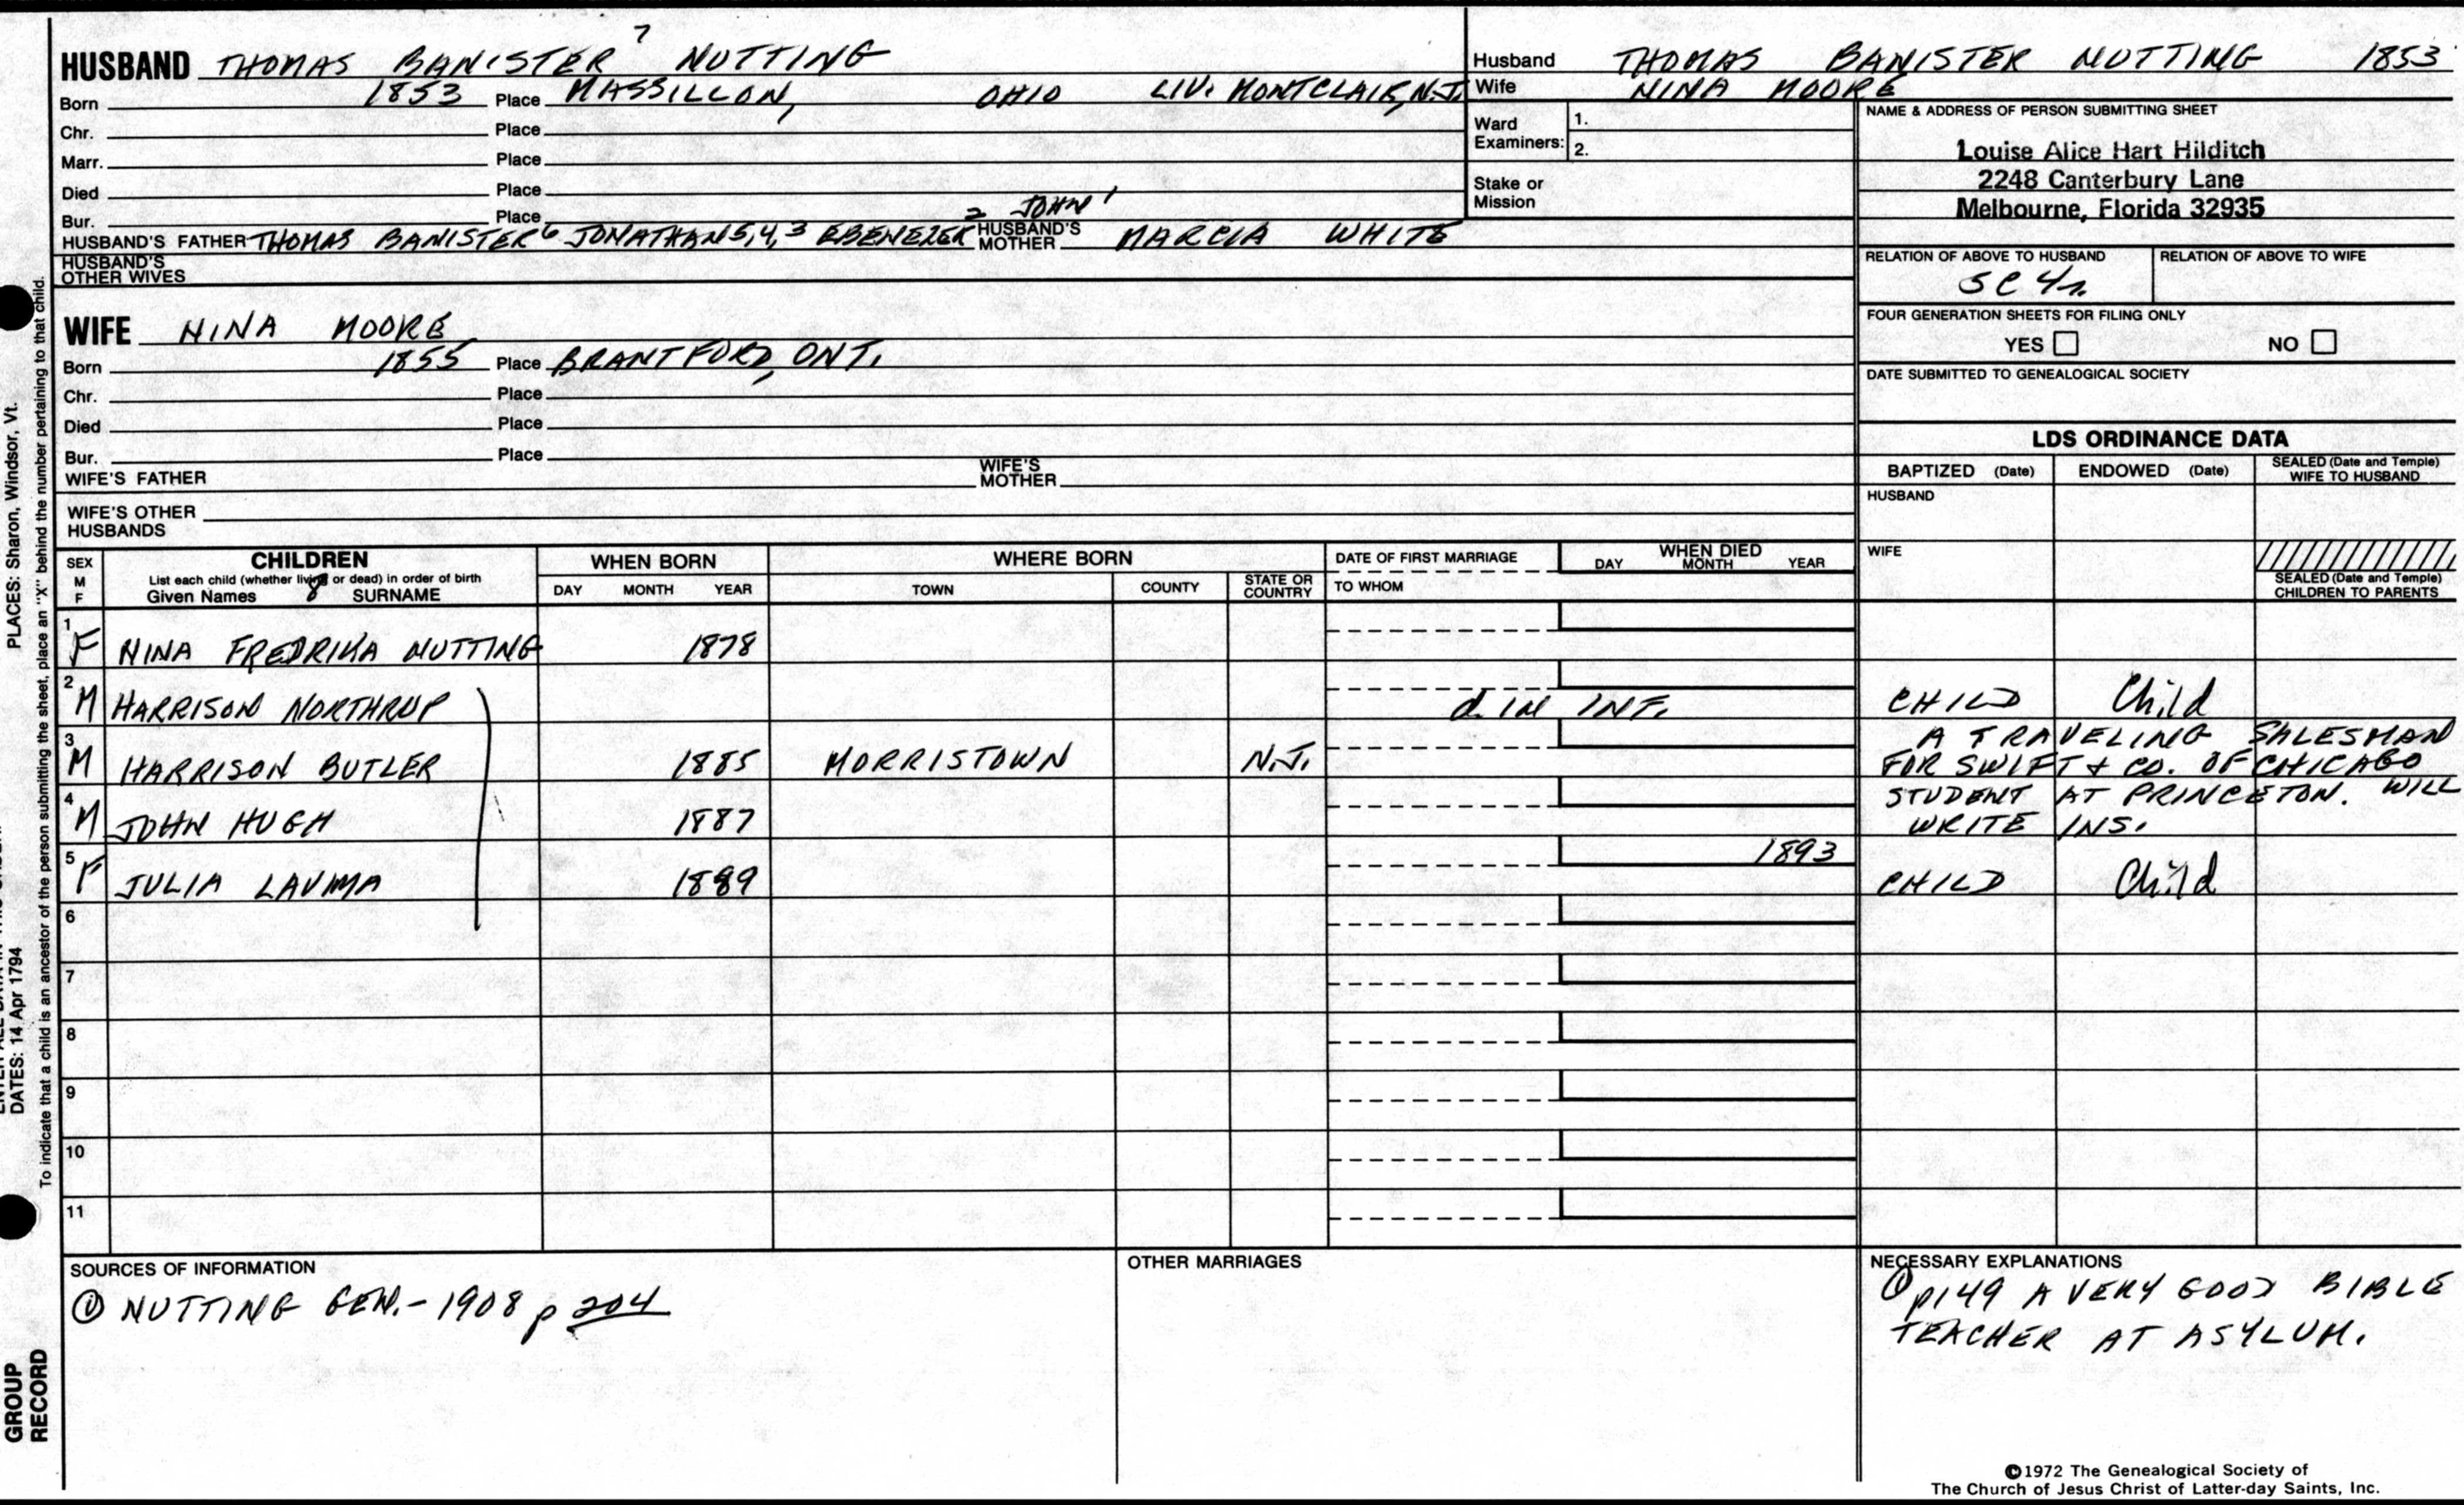 7
HUSBAND THOMAS BANISTER NUTTING
Born 1853 Place MASSILLON, OHIO LIV. MONTCLAIR, N.J.
Chr. Place
Marr. Place
Died Place
Bur. Place
2 JOHN 1
HUSBAND'S FATHER THOMAS BANISTER 6 JONATHAN 5,4,3 EBENEZER HUSBAND'S MOTHER MARCIA WHITE
HUSBAND'S OTHER WIVES
WIFE NINA MOORE
Born 1855 Place BRANTFORD, ONT.
Chr. Place
Died Place
Bur. Place
WIFE'S FATHER WIFE'S MOTHER
WIFE'S OTHER HUSBANDS
Husband THOMAS BANISTER NUTTING 1853
Wife NINA MOORE
Ward Examiners: 1.
2.
Stake or Mission
NAME & ADDRESS OF PERSON SUBMITTING SHEET
Louise Alice Hart Hilditch
2248 Canterbury Lane
Melbourne, Florida 32935
RELATION OF ABOVE TO HUSBAND RELATION OF ABOVE TO WIFE
FOUR GENERATION SHEETS FOR FILING ONLY
YES NO
DATE SUBMITTED TO GENEALOGICAL SOCIETY
LDS ORDINANCE DATA
BAPTIZED (Date) ENDOWED (Date) SEALED (Date and Temple) WIFE TO HUSBAND
HUSBAND
WIFE
SEALED (Date and Temple) CHILDREN TO PARENTS
SEX M F
CHILDREN
List each child (whether living or dead) in order of birth
Given Names 8 SURNAME
WHEN BORN
DAY MONTH YEAR
WHERE BORN
TOWN COUNTY STATE OR COUNTRY
DATE OF FIRST MARRIAGE
TO WHOM
WHEN DIED
DAY MONTH YEAR
1 F NINA FREDRIKA NUTTING 1878
2 M HARRISON NORTHRUP d. in INF. CHILD Child
3 M HARRISON BUTLER 1885 MORRISTOWN N.J. A TRAVELING SALESMAN
FOR SWIFT & CO. OF CHICAGO
4 M JOHN HUGH 1887 STUDENT AT PRINCETON. WILL
WRITE INS.
5 F JULIA LAVIMA 1889 1893 CHILD Child
6
7
8
9
10
11
SOURCES OF INFORMATION
① NUTTING GEN. - 1908 p 204
OTHER MARRIAGES
NECESSARY EXPLANATIONS
① p149 A VERY GOOD BIBLE
TEACHER AT ASYLUM.
©1972 The Genealogical Society of
The Church of Jesus Christ of Latter-day Saints, Inc.
PLACES: Sharon, Windsor, Vt.
DATES: 14 Apr 1794
To indicate that a child is an ancestor of the person submitting the sheet, place an "X" behind the number pertaining to that child.
GROUP
RECORD